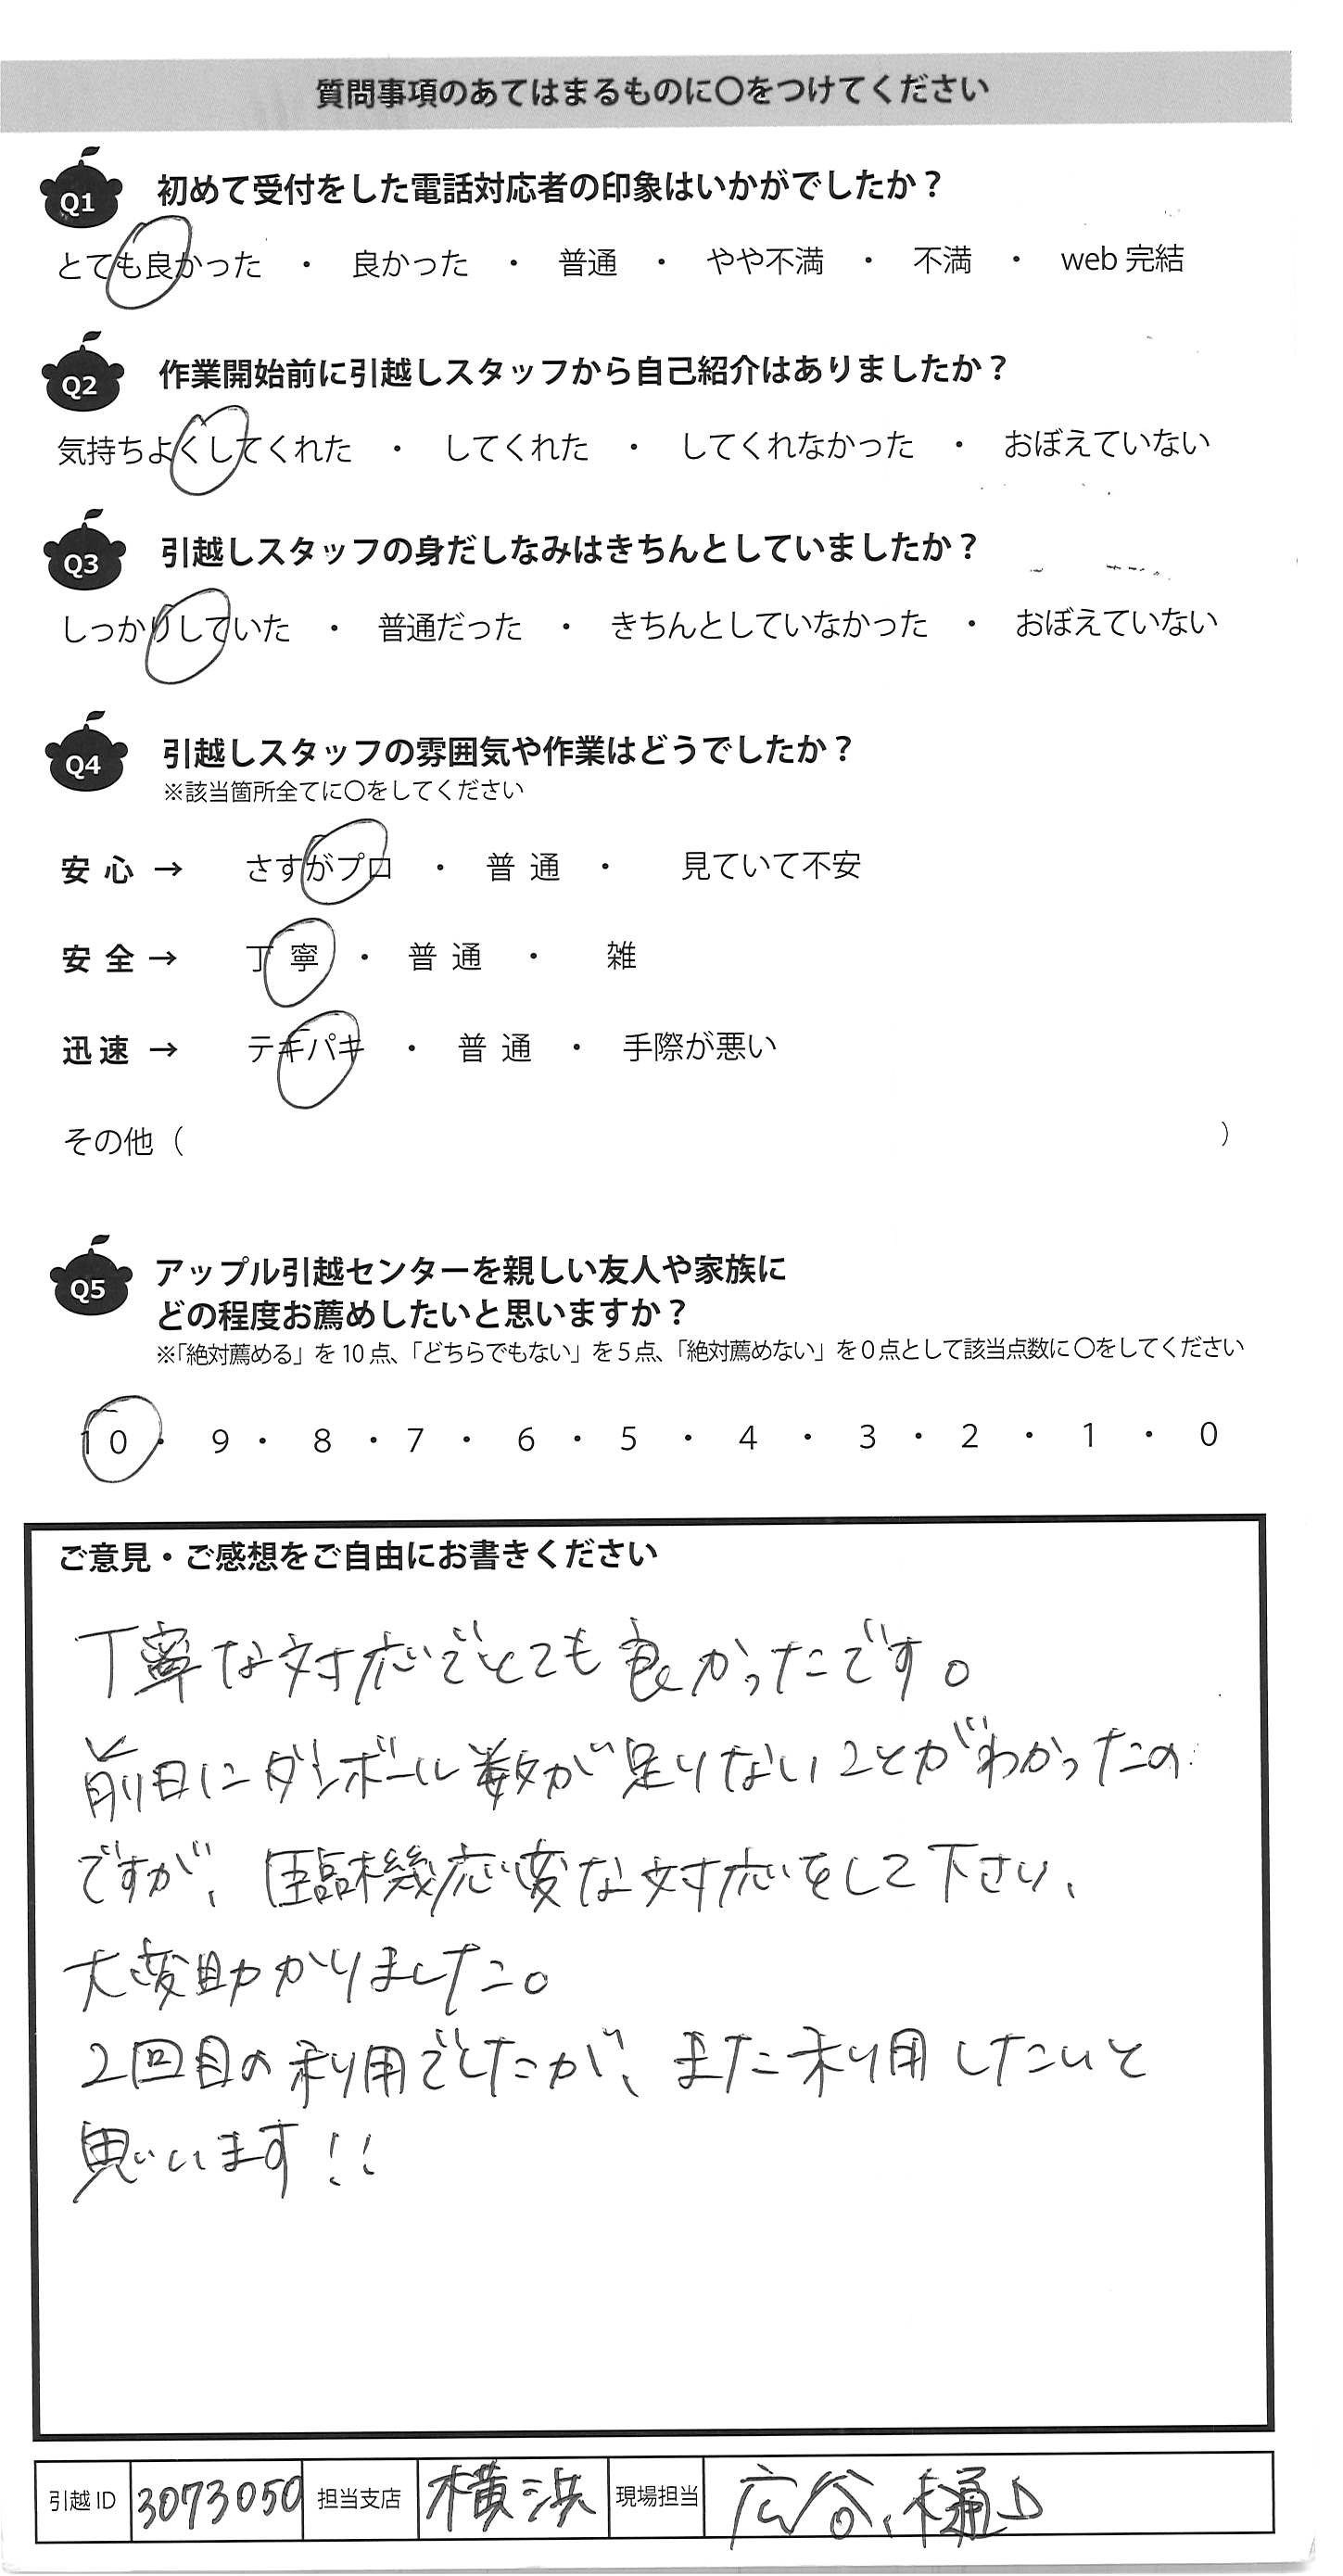 質問事項のあてはまるものに〇をつけてください
Q1 初めて受付をした電話対応者の印象はいかがでしたか？
とても良かった ・ 良かった ・ 普通 ・ やや不満 ・ 不満 ・ web 完結
Q2 作業開始前に引越しスタッフから自己紹介はありましたか？
気持ちよくしてくれた ・ してくれた ・ してくれなかった ・ おぼえていない
Q3 引越しスタッフの身だしなみはきちんとしていましたか？
しっかりしていた ・ 普通だった ・ きちんとしていなかった ・ おぼえていない
Q4 引越しスタッフの雰囲気や作業はどうでしたか？
※該当箇所全てに〇をしてください
安心 → さすがプロ ・ 普通 ・ 見ていて不安
安全 → 丁寧 ・ 普通 ・ 雑
迅速 → テキパキ ・ 普通 ・ 手際が悪い
その他（ ）
Q5 アップル引越センターを親しい友人や家族に
どの程度お薦めしたいと思いますか？
※「絶対薦める」を 10 点、「どちらでもない」を 5 点、「絶対薦めない」を 0 点として該当点数に〇をしてください
10 ・ 9 ・ 8 ・ 7 ・ 6 ・ 5 ・ 4 ・ 3 ・ 2 ・ 1 ・ 0
ご意見・ご感想をご自由にお書きください
丁寧な対応でとても良かったです。
前日にダンボール数が足りないことがわかったの
ですが、臨機応変な対応をして下さい、
大変助かりました。
2回目の利用でしたが、また利用したいと
思います!!
引越 ID 3073050 担当支店 横浜 現場担当 広谷、樋口